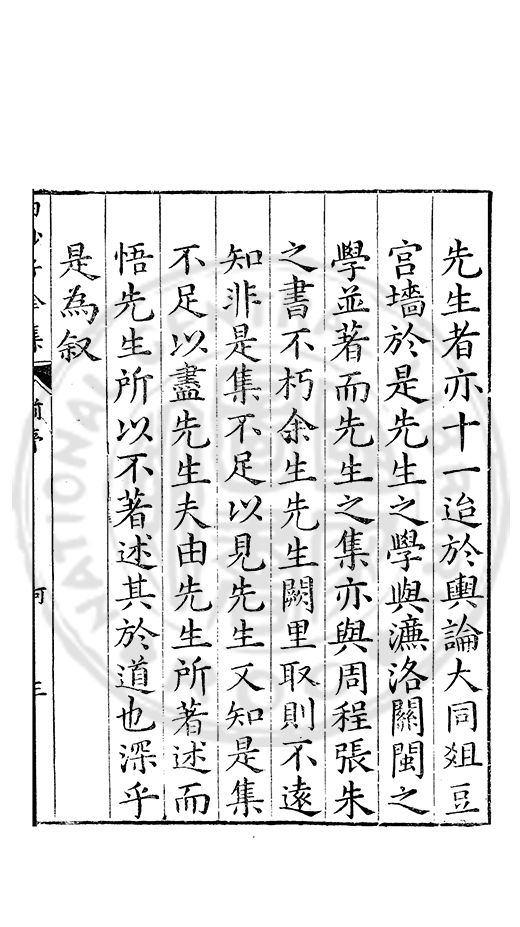 先生者亦十一迨於輿論大同爼豆
宫墻於是先生之學與濂洛關閩之
學並著而先生之集亦與周程張朱
之書不朽余生先生闕里取則不遠
知非是集不足以見先生又知是集
不足以盡先生夫由先生所著述而
悟先生所以不著述其於道也深乎
是為叙
全集
三